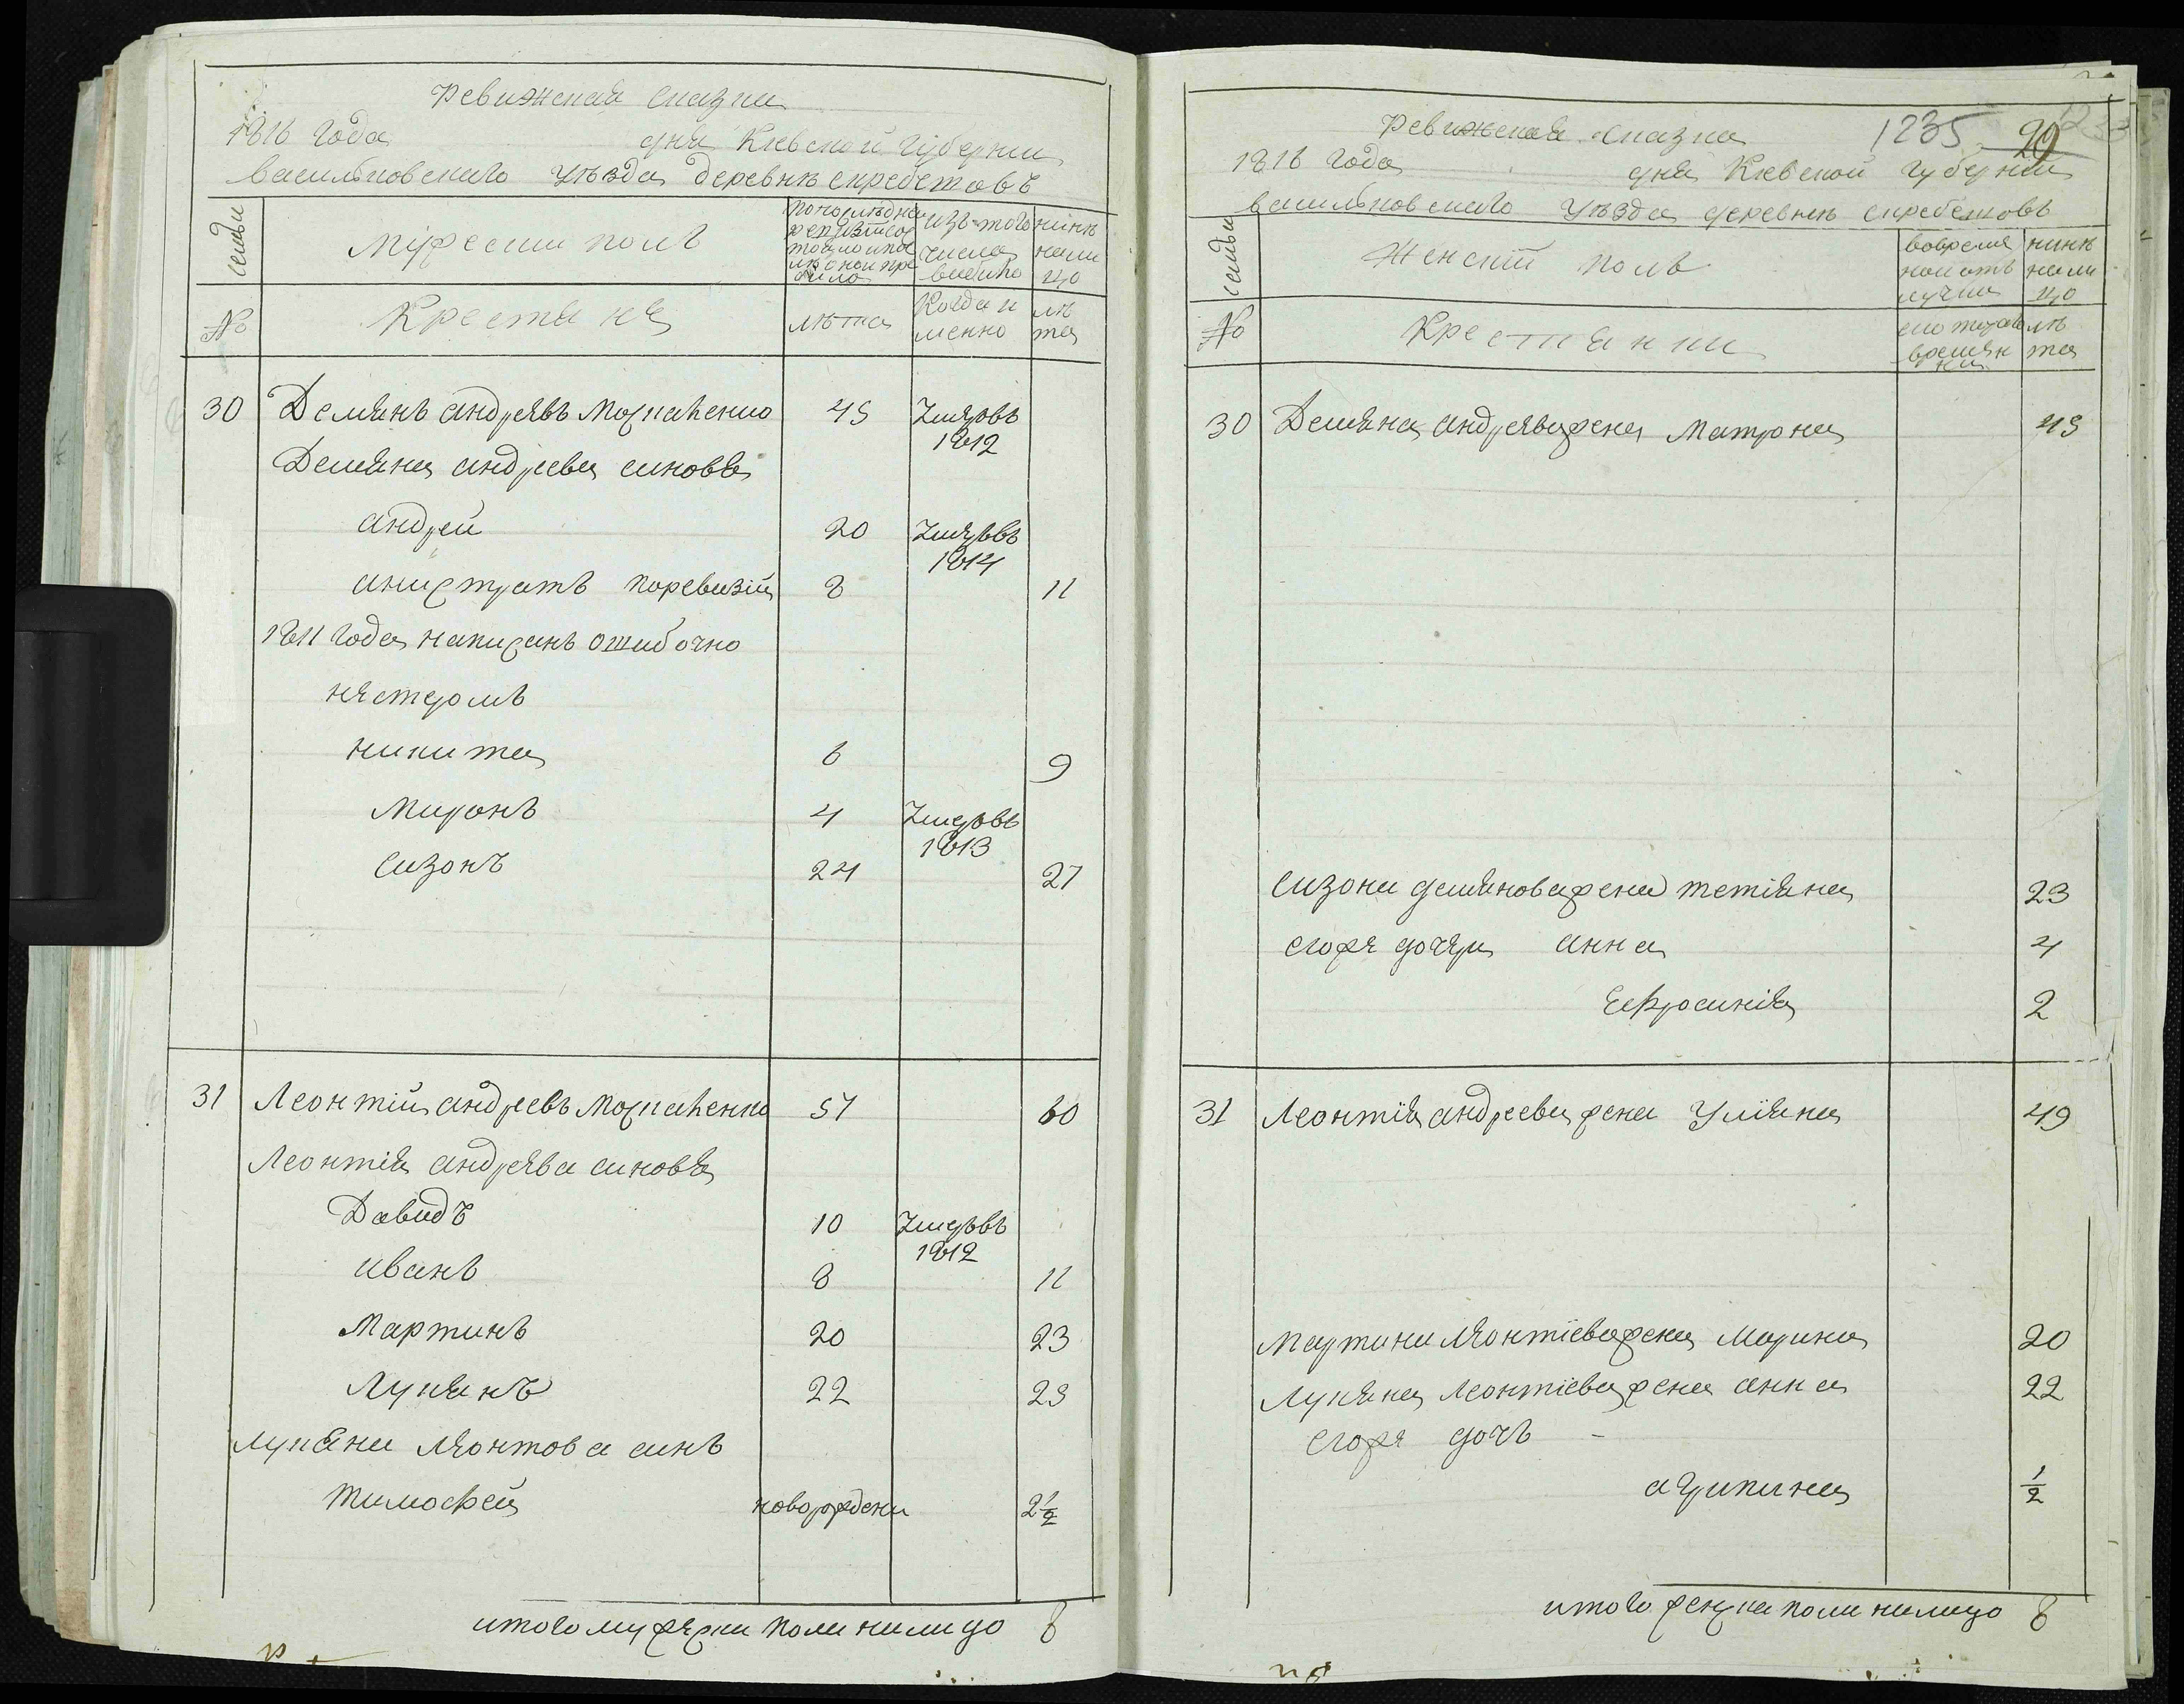 Ревижская сказка
1816 года дня Киевской губернии
васильковского уъзда деревнъ скребешовъ
семьи
Мужеский полъ
изъ того числа выбыло
нинъ на лицо
№
Крестяня
лъта
Когда именно
лъта
30 Демянъ андреявъ Москаленко 45 Умеръвъ 1812
Демяна андреева синовя
андрей 20 Умеръвъ 1814
анистратъ поревизіи 8 11
1811 года написанъ ошибочно
нястеромъ
никита 6 9
Миронъ 4 Умеръвъ 1813
сизонъ 24 27
31 Леонтій андреевъ Москаленко 57 60
Леонтія андреява синовя
Давидъ 10 Умеръвъ 1812
иванъ 8 11
Мартинъ 20 23
Лукянъ 22 25
лукяна лявонтова синъ
тимофей новорожденъ 2½
итого мужеска пола налицо 8
Ревижская сказка 1235 29
1816 года дня Киевской губернии
васильковского уъзда деревнъ скребешовъ
семьи
Женский полъ
вовремяной отлучки
нинъ на лицо
№
Крестянки
лъта
30 Демяна андреява жена Матрона 45
сизона демянова жена тетіяна 23
егожя дочяри анна 4
Ефросинія 2
31 Леонтія андреева жена Уліяна 49
Мартина ляонтіева жена Марина 20
Лукяна леонтіева жена анна 22
егожя дочъ -
агрипина ½
итого женска пола налицо 8